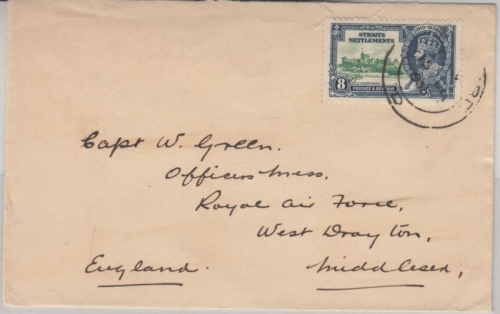 STRAITS
SETTLEMENTS
8
POSTAGE & REVENUE
Capt W. Green.
Officers Mess,
Royal Air Force,
West Drayton,
England. Middlesex,